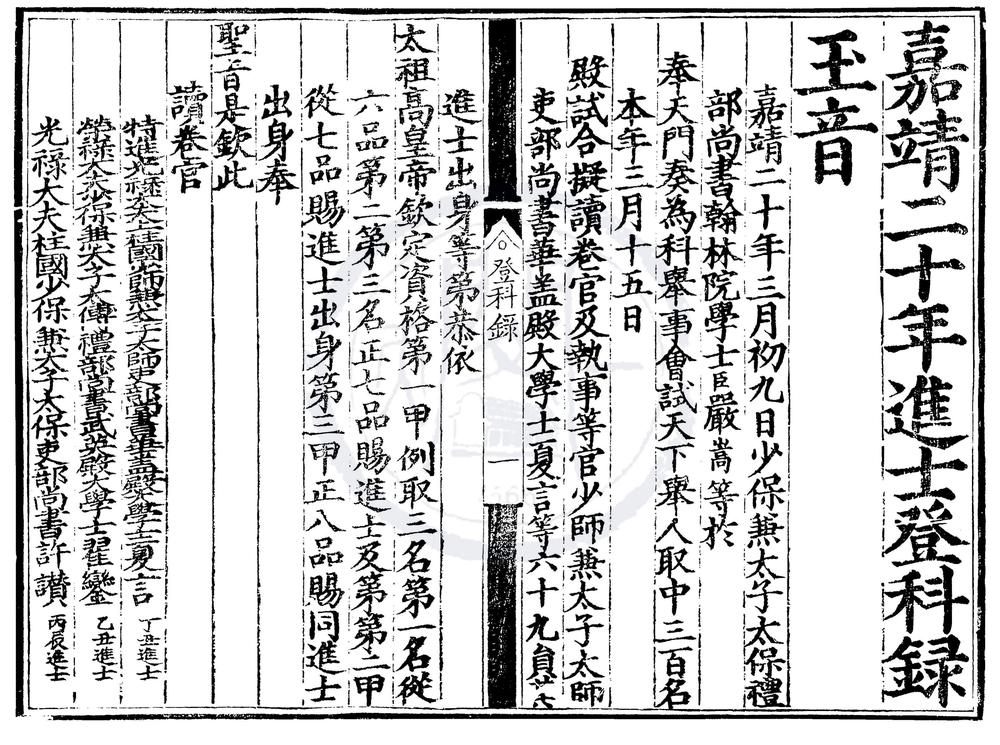 嘉靖二十年進士登科録
玉音
嘉靖二十年三月初九日少保兼太子太保禮
部尚書翰林院學士臣嚴嵩等於
奉天門奏為科舉事會試天下舉人取中三百名
本年三月十五日
殿試合擬讀卷官及執事等官少師兼太子太師
吏部尚書華盖殿大學士夏言等六十九員其
登科録
一
進士出身等第恭依
太祖高皇帝欽定資格第一甲例取三名第一名從
六品第二第三名正七品賜進士及第第二甲
從七品賜進士出身第三甲正八品賜同進士
出身奉
聖旨是欽此
讀卷官
特進光祿大夫上柱國少師兼太子太師吏部尚書華盖殿大學士夏言 丁丑進士
榮祿大夫少保兼太子太傅禮部尚書武英殿大學士翟鑾 乙丑進士
光祿大夫柱國少保兼太子太保吏部尚書許讃 丙辰進士